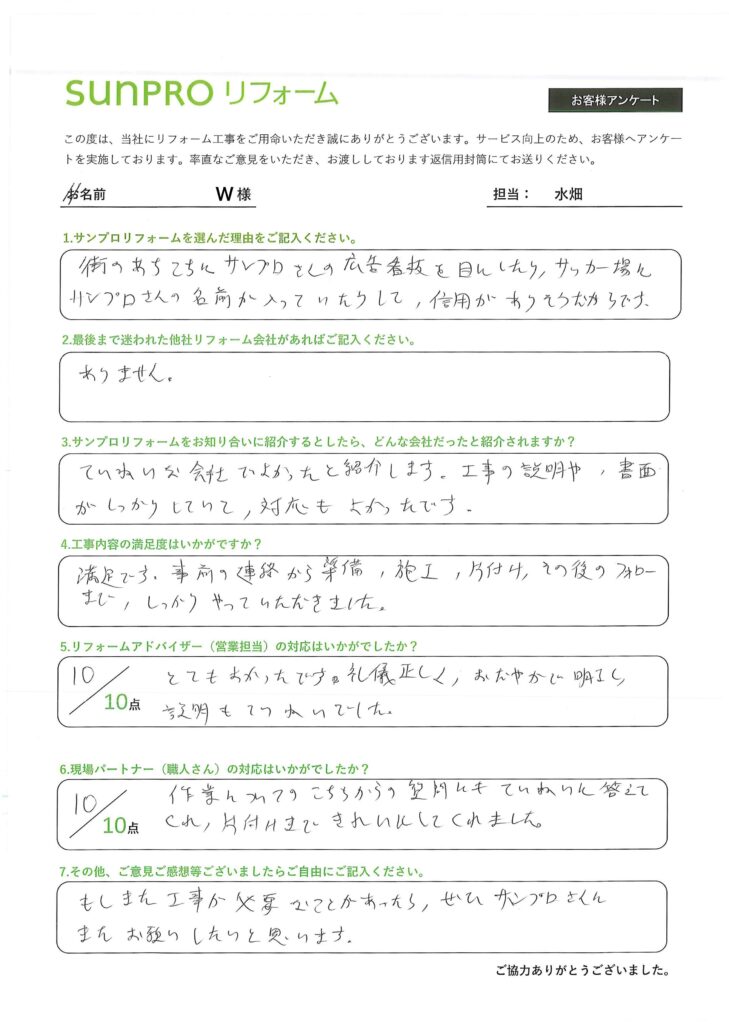 SUNPRO リフォーム
お客様アンケート
この度は、当社にリフォーム工事をご用命いただき誠にありがとうございます。サービス向上のため、お客様へアンケー
トを実施しております。率直なご意見をいただき、お渡ししております返信用封筒にてお送りください。
お名前 W 様 担当： 水畑
1.サンプロリフォームを選んだ理由をご記入ください。
街のあちこちにサンプロさんの広告看板を目にしたり、サッカー場に
サンプロさんの名前が入っていたりして、信用がありそうだからです。
2.最後まで迷われた他社リフォーム会社があればご記入ください。
ありません。
3.サンプロリフォームをお知り合いに紹介するとしたら、どんな会社だったと紹介されますか？
ていねいな会社でよかったと紹介します。工事の説明や、書面
がしっかりしていて、対応もよかったです。
4.工事内容の満足度はいかがですか？
満足です。事前の連絡から準備、施工、片付け、その後のフォロー
まで、しっかりやっていただきました。
5.リフォームアドバイザー（営業担当）の対応はいかがでしたか？
10／10点 とてもよかったです。礼儀正しく、おだやかで明るく
説明もていねいでした。
6.現場パートナー（職人さん）の対応はいかがでしたか？
10／10点 作業についてのこちらからの質問にもていねいに答えて
くれ、片付けまできれいにしてくれました。
7.その他、ご意見ご感想等ございましたらご自由にご記入ください。
もしまた工事が必要なことがあったら、ぜひサンプロさんに
またお願いしたいと思います。
ご協力ありがとうございました。